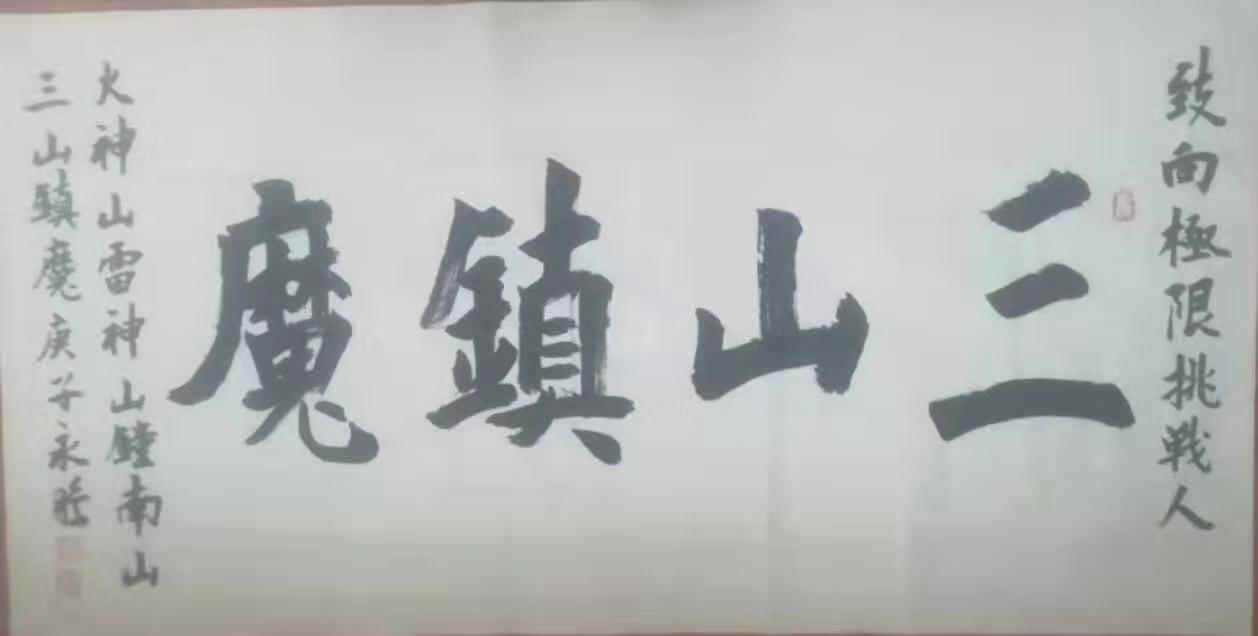 致向極限挑戦人
三山鎮魔
火神山雷神山鐘南山
三山鎮魔庚子永